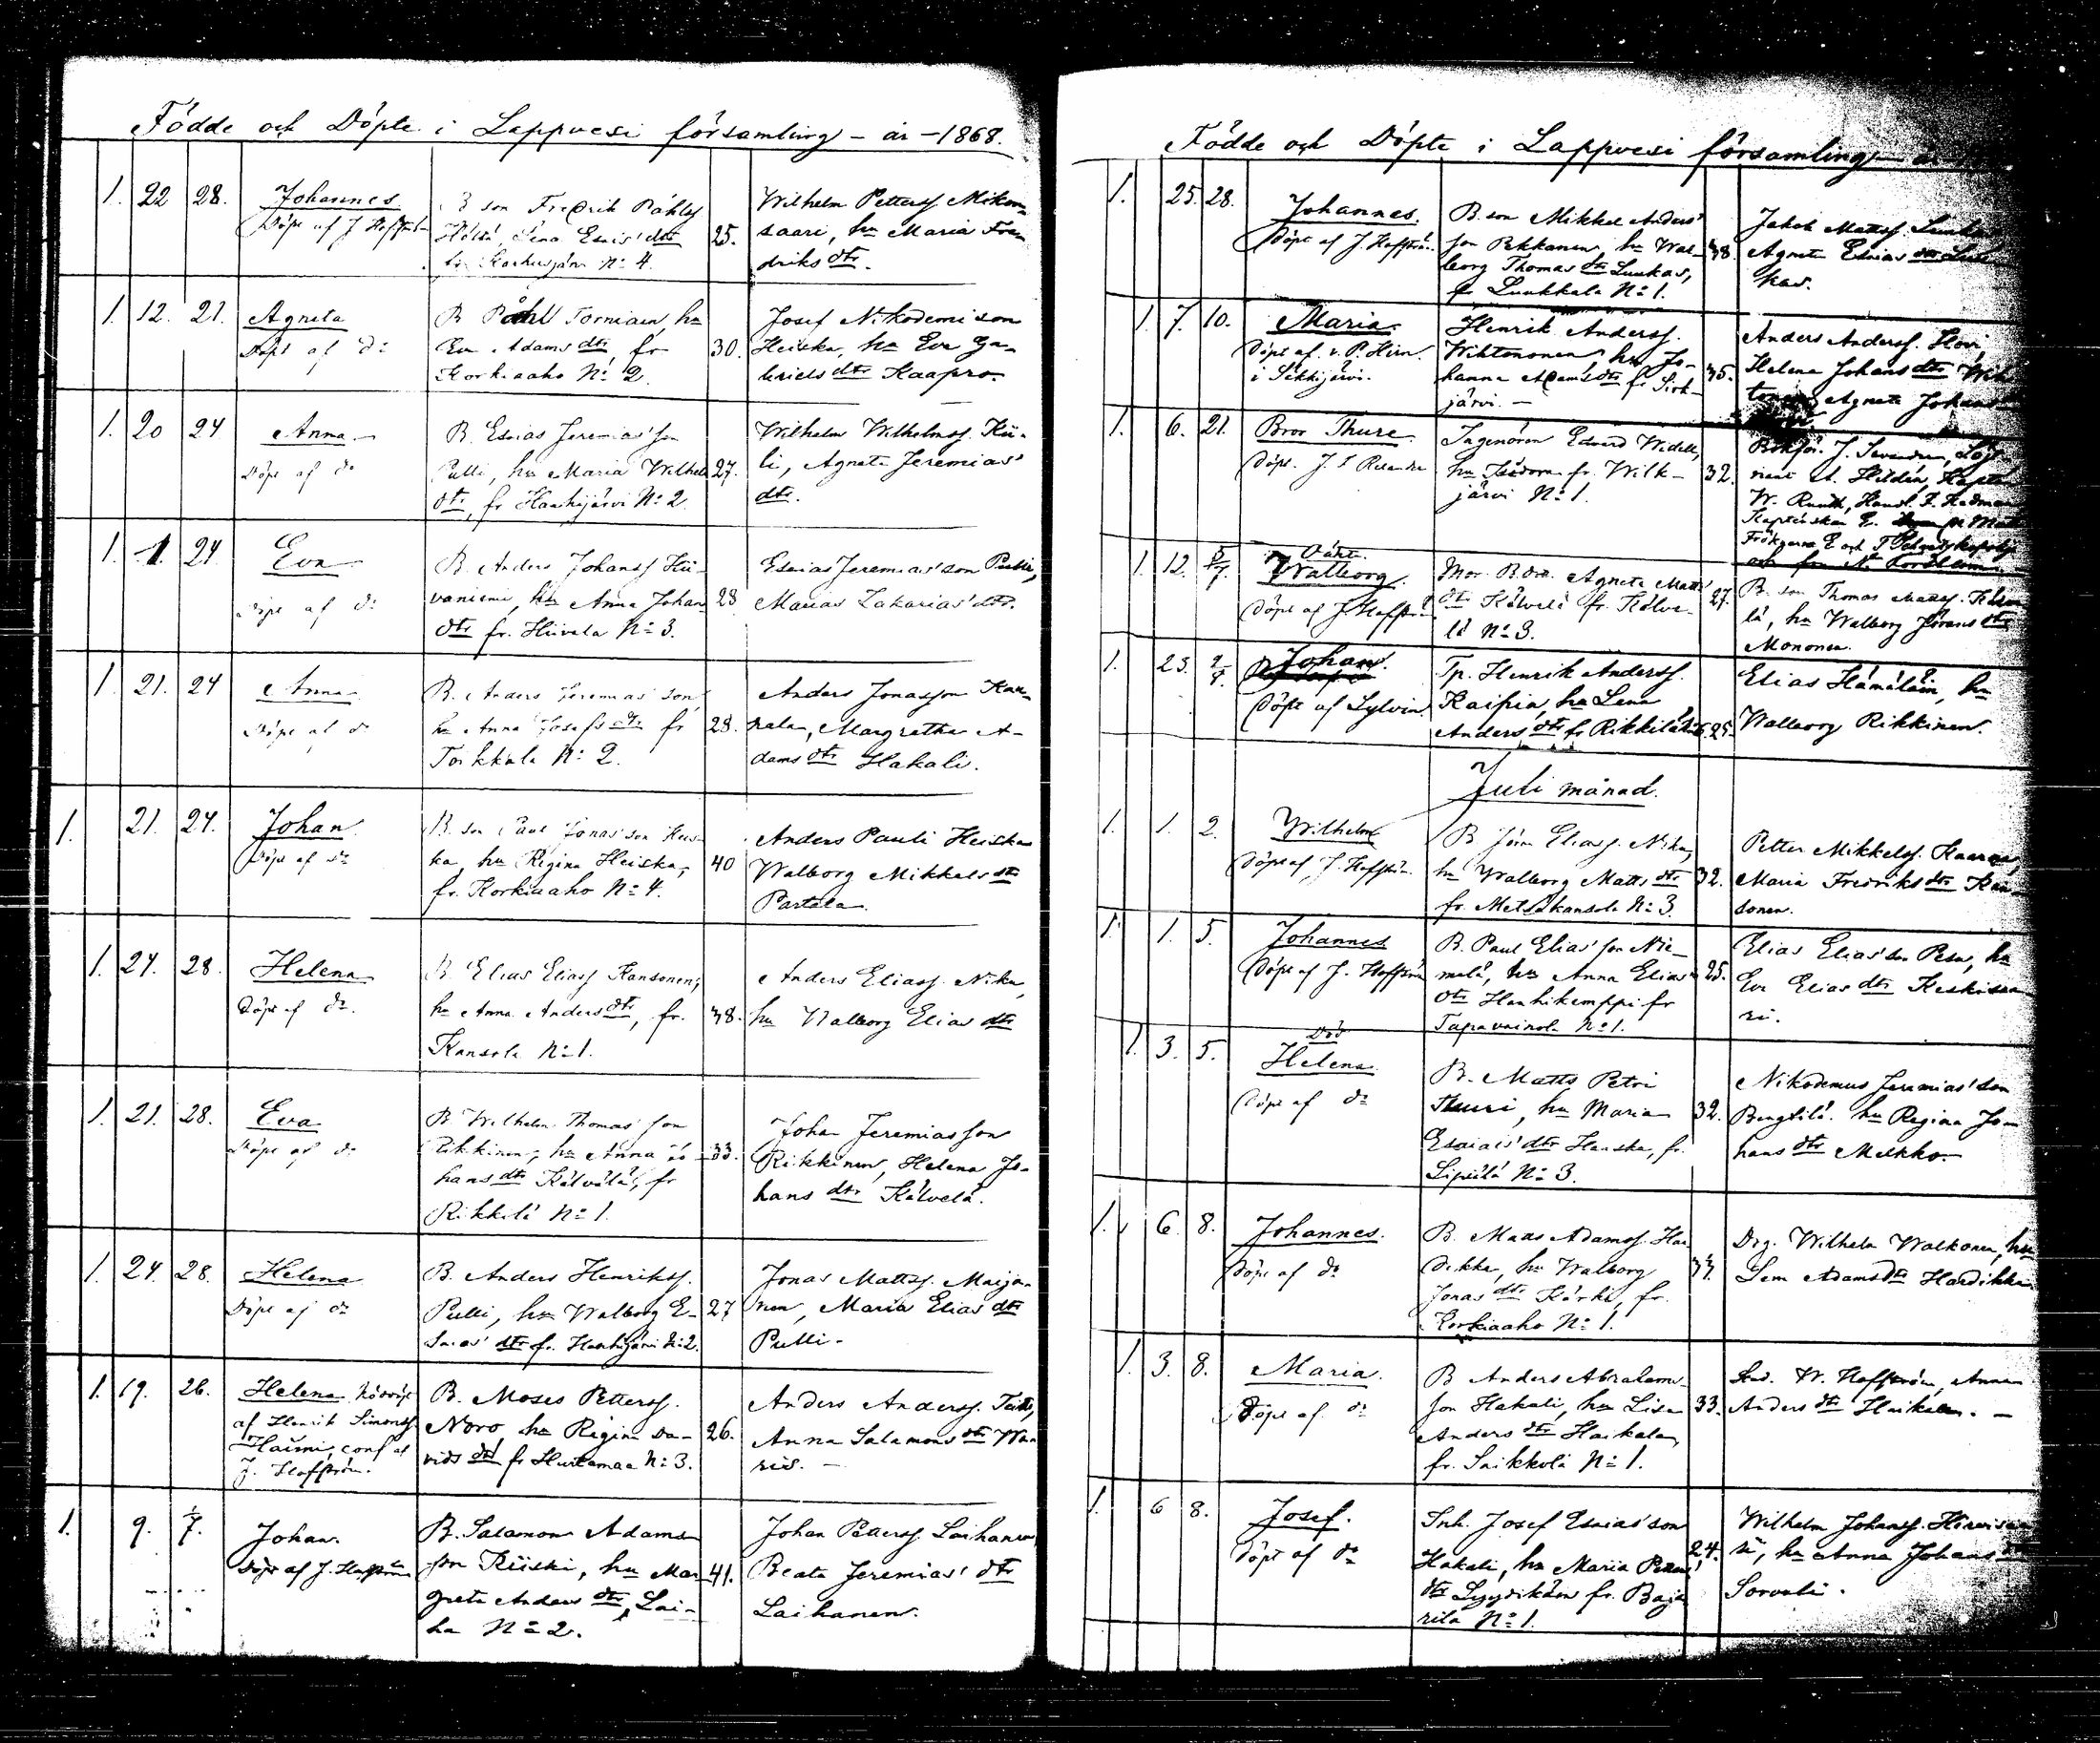 Födde och Döpte i Lappvesi församling - år - 1868.
1. 22 28. Johannes
Döpt af J Hoffström
B son Fredrik Påhlss
Lena Esais' dtr
N:o 4.
25.
Wilhelm Petterss Mikon-
saari, hu Maria Fre-
driks dtr.
1. 12. 21. Agneta
Döpt af do
B Påhl Torniain, hu
Eva Adams dtr, fr
Korkiaaho N:o 2.
30.
Josef Nikodemi son
Heiska, hu Eva Ga-
briels dtr Kaapro.
1. 20 24 Anna
Döpt af do
B. Esaias Jeremias' son
Pulli, hu Maria Wilhelms
dtr, fr Hanhijärvi N:o 2
27.
Wilhelm Wilhelmss. Kii-
li, Agneta Jeremias'
dtr.
1. 1. 24 Eva
Döpt af do
B. Anders Johanss Hii-
vaniemi, hu Anna Johans
dtr fr. Hiivala N:o 3.
28.
Esaias Jeremias'son Pulli,
Marias Zakarias' dtr.
1. 21. 24 Anna
Döpt af do
B. Anders Jeremias' son,
hu Anna Josefs dtr fr
Toikkala N:o 2.
28.
Anders Jonasson Kau-
nala, Margretha A-
dams dtr Hakali.
1. 21. 24. Johan
Döpt af do
B. son Paul Jonas' son Heis-
ka, hu Regina Heiska,
fr. Korkiaaho N:o 4.
40
Anders Pauli Heiska
Walborg Mikkels dtr
Partala.
1. 24. 28. Helena
Döpt af do.
B. Elias Eliass Kansonen,
hu Anna Anders dtr, fr.
Kansola N:o 1.
38.
Anders Eliass. Niku,
hu Walborg Elias dtr
1. 21. 28. Eva
Döpt af do
B Wilhelm Thomas' son
Rikkinen, hu Anna Jo-
hans dtr Kälvälä, fr
Rikkilä N:o 1.
33.
Johan Jeremias son
Rikkinen, Helena Jo-
hans dtr Kälvelä.
1. 24. 28. Helena
Döpt af do
B. Anders Henrikss.
Pulli, hu Walborg E-
saias' dtr fr. Hanhijärvi N:o 2.
27
Jonas Mattss. Maija-
nen, Maria Elias dtr
Pulli.
1. 19. 26. Helena Nöddöpt
af Henrik Simonss
conf af
J. Hoffström.
B. Moses Petterss.
Novo, hu Regina Da-
vids dtr fr Hurtamaa N:o 3.
26.
Anders Anderss.
Anna Salamons dtr
1. 9. 1/7. Johan.
Döpt af J. Hoffström
B. Salamon Adams
son Kiiski, hu Mar-
greta Anders dtr, Lai-
ha N:o 2.
41.
Johan Petterss Laihanen,
Beata Jeremias' dtr
Laihanen.
Födde och Döpte i Lappvesi församling
1. 25. 28. Johannes.
Döpt af J. Hoffström.
B. son Mikkel Anders'
son Pekkanen, hu Wal-
borg Thomas dtr Luukas,
fr Luukkala N:o 1.
38
Jakob Mattss.
Agneta Esaias dtr
kas.
1. 7. 10. Maria.
Döpt af v. P. Hirn.
i Säkkijärvi.
Henrik Anderss.
Wihtononen, hu Jo-
hanna Adams dtr fr Sirk-
järvi. -
35.
Anders Anderss. Hovi
Helena Johans dtr Wih-
tonen, Agneta Johans
1. 6. 21. Bror Thure.
Döpt. J. F
Ingenören Edvard Widell,
hu Isidora fr. Wilk-
järvi N:o 1.
32.
Bokför. J.
W. Ruuth, Handl.
Kaptenskan E.
Fröknarna E och T
1. 12. 5/7. Oäkta.
Walborg.
Döpt af J. Hoffström
Mor. B.dr. Agneta Matts
dtr Kälvelä fr. Kälve-
lä N:o 3.
27.
B. son Thomas Mattss.
lä, hu Walborg Jörans dtr
Mononen.
1. 23. Johan.
Döpt af Sylvin.
Tp. Henrik Anderss.
Kaipia, hu Lena
Anders dtr fr Rikkilä
25.
Elias Hämäläin, hu
Walborg Rikkinen.
Juli månad.
1. 1. 2. Wilhelm
Döpt af J. Hoffström.
B Jöran Eliass. Niku,
hu Walborg Matts dtr
fr. Metsäkansola N:o 3.
32.
Petter Mikkelss.
Maria Fredriks dtr Kan-
sonen.
1. 1. 5. Johannes
Döpt af J. Hoffström
B. Paul Elias' son Nie-
melä, hu Anna Elias
dtr Hanhikemppi fr
Tapavainola N:o 1.
25.
Elias Elias'son Pesu, hu
Eva Elias dtr Keskisaa
ri.
1. 3. 5. Död
Helena
Döpt af do
B. Matts Petri
Tuuri, hu Maria
Esaias' dtr Hanska, fr.
Sipilä N:o 3.
32.
Nikodemus Jeremias'son
Bengtilä. hu Regina Jo-
hans dtr Melkko.
1. 6. 8. Johannes.
Döpt af do
B. Mats Adamss. Har-
dikka, hu Walborg
Jonas dtr Kärki, fr.
Korkiaaho N:o 1.
Drg. Wilhelm Walkonen, hu
Lena Adams dtr Hardikka.
1. 3. 8. Maria.
Döpt af do
B Anders Abrahams-
son Hakali, hu Lisa
Anders dtr Haikala,
fr. Saikkola N:o 1.
33.
Stud. W. Hoffström, Anna
Anders dtr Haikala. -
1. 6 8. Josef.
Döpt af do
Inh. Josef Esaias' son
Hakali, hu Maria Petters'
dtr Lyydikäin fr. Baja-
rila N:o 1.
24.
Wilhelm Johanss. Hirvisaa
ri, hu Anna Johans dtr
Sorvali.